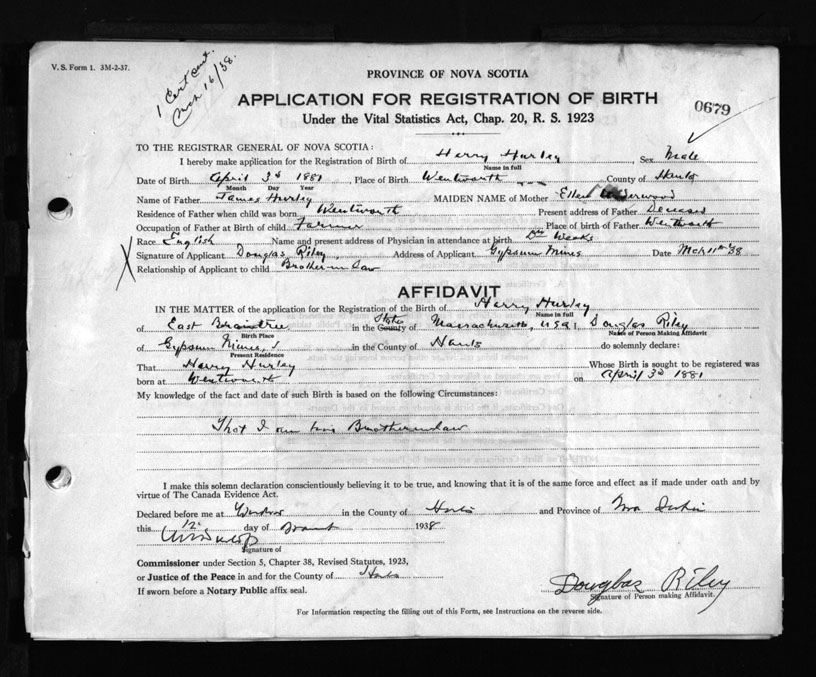 V. S. Form 1. 3M-2-37.
1 Cert sent.
Mch 16/38.
PROVINCE OF NOVA SCOTIA
APPLICATION FOR REGISTRATION OF BIRTH
0679
Under the Vital Statistics Act, Chap. 20, R. S. 1923
TO THE REGISTRAR GENERAL OF NOVA SCOTIA:
I hereby make application for the Registration of Birth of Harry Hurley Sex Male
Name in full
Date of Birth April 3d 1881 Place of Birth Wentworth County of Hants
Month Day Year
Name of Father James Hurley MAIDEN NAME of Mother Ellen
Residence of Father when child was born Wentworth Present address of Father Deceased
Occupation of Father at Birth of child Farmer Place of birth of Father Wentworth
Race English Name and present address of Physician in attendance at birth Weeks
Signature of Applicant Douglas Riley Address of Applicant Gypsum Mines Date Mch 11th 38
Relationship of Applicant to child Brother in Law
AFFIDAVIT
IN THE MATTER of the application for the Registration of the Birth of Harry Hurley
Name in full
of East Braintree in the State County of Massachusetts, USA, Douglas Riley
Birth Place Name of Person Making Affidavit
of Gypsum Mines, in the County of Hants do solemnly declare:
Present Residence
That Harry Hurley Whose Birth is sought to be registered was
born at Wentworth on April 3d 1881
My knowledge of the fact and date of such Birth is based on the following Circumstances:
That I am his Brother in law
I make this solemn declaration conscientiously believing it to be true, and knowing that it is of the same force and effect as if made under oath and by
virtue of The Canada Evidence Act.
Declared before me at Windsor in the County of Hants and Province of Nova Scotia
this 12 day of March 1938
Signature of
Commissioner under Section 5, Chapter 38, Revised Statutes, 1923,
or Justice of the Peace in and for the County of Hants
If sworn before a Notary Public affix seal.
Douglas Riley
Signature of Person making Affidavit.
For Information respecting the filling out of this Form, see Instructions on the reverse side.